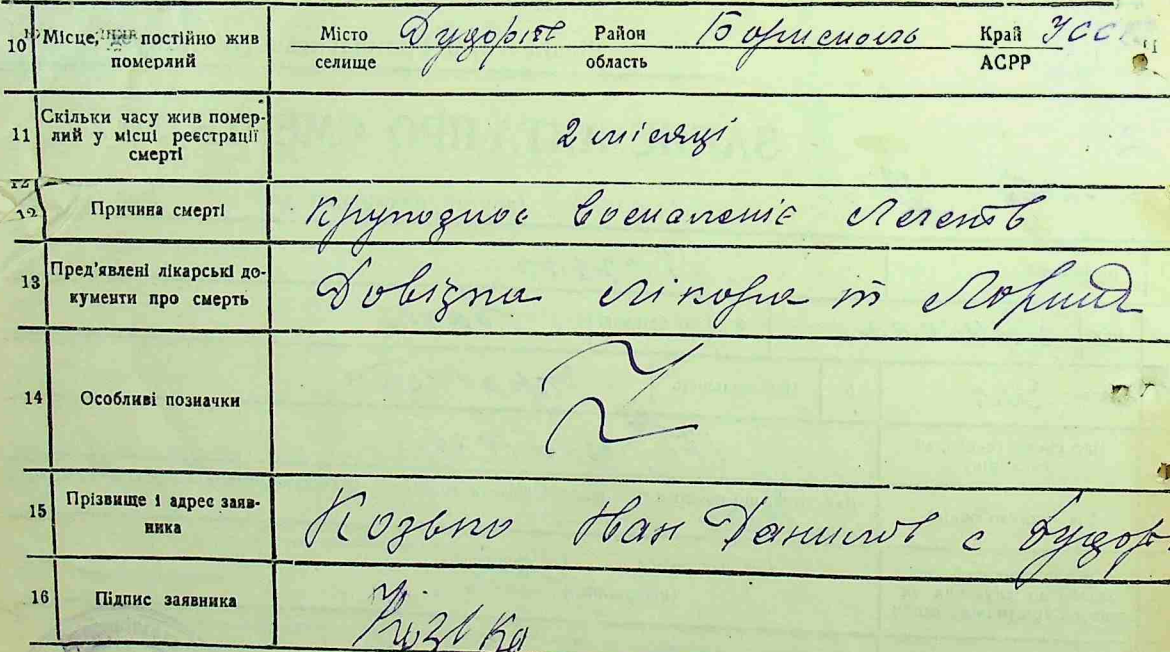 10 Місце, де постійно жив померлий
Місто селище Дударків Район область Бориспольс Край АСРР УССР
11 Скільки часу жив помер-
лий у місці реєстрації
смерті
2 місяці
12 Причина смерті Крупозное воспаленіє легенів
13 Пред'явлені лікарські до-
кументи про смерть
Довізна лікора
14 Особливі позначки
15 Прізвище і адрес заяв-
ника
Козько Иван Данилов с
16 Підпис заявника Козька